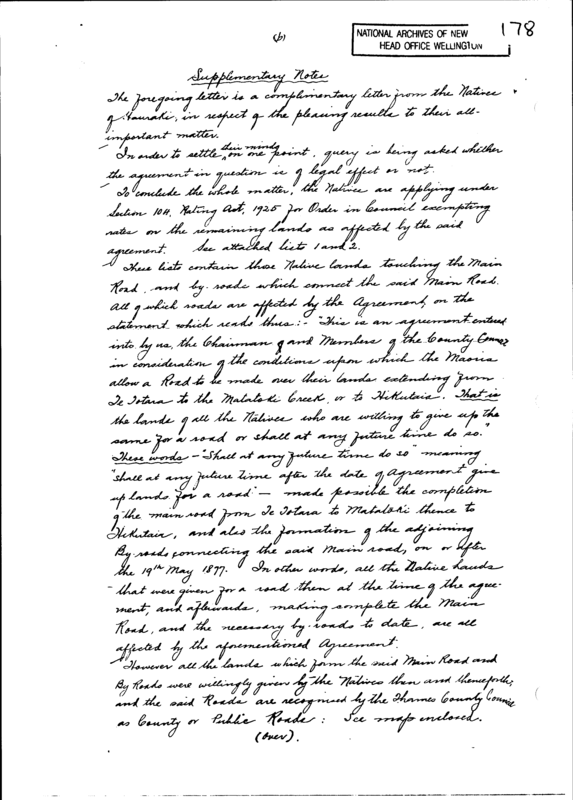 (b)
NATIONAL ARCHIVES OF NEW
HEAD OFFICE WELLINGTON
178
Supplementary Notes
The foregoing letter is a complimentary letter from the Natives
of Hauraki, in respect of the pleasing results to their all-
important matter.
In order to settle their minds on one point, query is being asked whether
the agreement in question is of legal effect or not.
To conclude the whole matter, the Natives are applying under
Section 104, Rating Act, 1925 for Order in Council exempting
rates on the remaining lands as affected by the said
agreement. See attached lists 1 and 2.
These lists contain those Native lands touching the Main
Road, and by-roads which connect the said Main Road.
All of which roads are affected by the Agreement, on the
statement which reads thus:- "This is an agreement entered
into by us, the Chairman and Members of the County Council
in consideration of the conditions upon which the Maoris
allow a Road to be made over their lands extending from
Te Totara to the Matatoki Creek, or to Hikutaia. That is
the lands of all the Natives who are willing to give up the
same for a road or shall at any future time do so."
These words - "Shall at any future time do so" meaning
"shall at any future time after the date of Agreement give
up lands for a road" - made possible the completion
of the main road from Te Totara to Matatoki thence to
Hikutaia, and also the formation of the adjoining
By-roads connecting the said Main road, on or after
the 19th May 1877. In other words, all the Native lands
that were given for a road then at the time of the agree-
ment, and afterwards, making complete the Main
Road, and the necessary by-roads to date, are all
affected by the aforementioned Agreement.
However all the lands which form the said Main Road and
By Roads were willingly given by the Natives then and thenceforth,
and the said Roads are recognised by the Thames County Council
as County or Public Roads: See map enclosed.
(over).